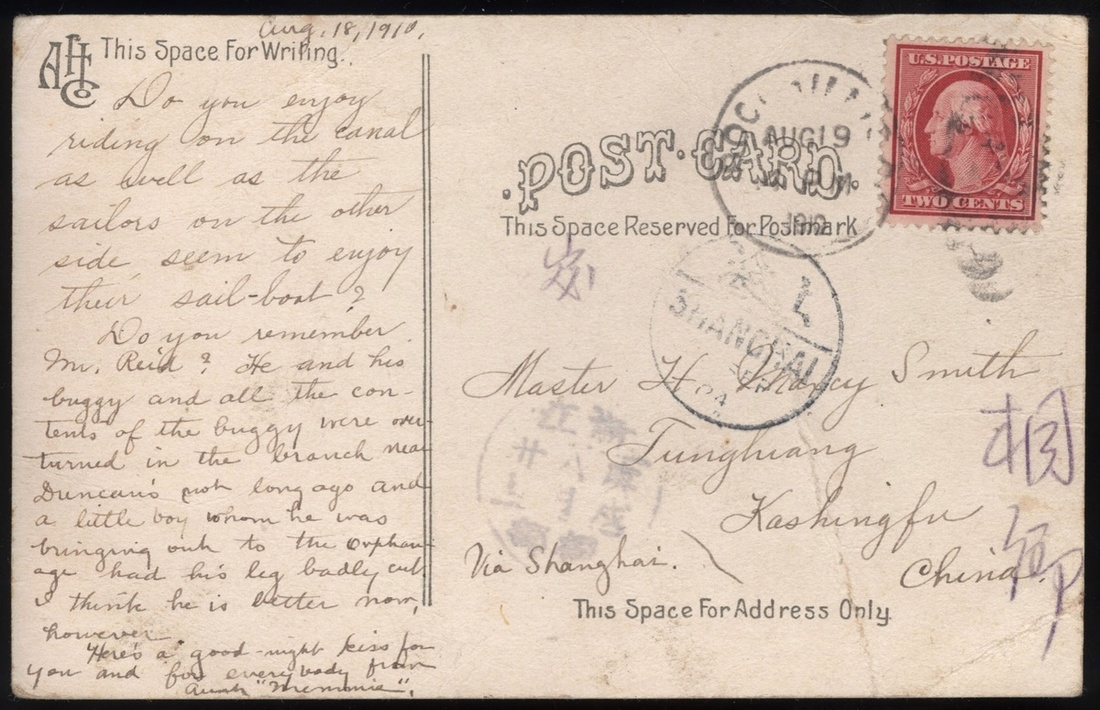 Aug. 18, 1910.
AHCo
This Space For Writing.
Do you enjoy
riding on the canal
as well as the
sailors on the other
side seem to enjoy
their sail-boat?
Do you remember
Mr. Reid? He and his
buggy and all the con-
tents of the buggy were over-
turned in the branch near
Duncan's not long ago and
a little boy whom he was
bringing out to the Orphan-
age had his leg badly cut.
I think he is better now,
however.
Here's a good-night kiss for
you and for everybody from
Aunt "Memmie".
U.S. POSTAGE
TWO CENTS
AUG 19
1910
POST CARD.
This Space Reserved For Postmark
SHANGHAI
Master H. Smith
Tunghiang
Kashingfu
Via Shanghai.
China.
桐
鄉
This Space For Address Only.